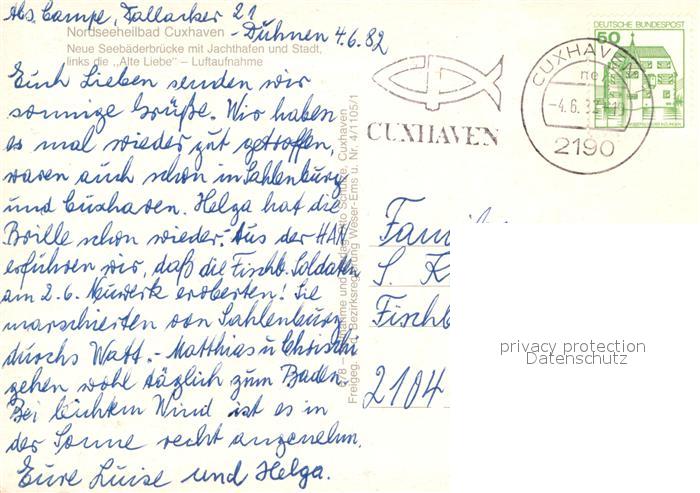 Abs. Campe, Dallacker 21
Nordseeheilbad Cuxhaven - Duhnen 4.6.82
Neue Seebäderbrücke mit Jachthafen und Stadt,
links die „Alte Liebe“ – Luftaufnahme
Euch Lieben senden wir
sonnige Grüße. Wir haben
es mal wieder gut getroffen,
waren auch schon in Sahlenburg
und Cuxhaven. Helga hat die
Brille schon wieder. Aus der HAN
erfuhren wir, daß die Fischb. Soldaten
am 2.6. Neuwerk eroberten! Sie
marschierten von Sahlenburg
durchs Watt. - Matthias u Christi
gehen wohl täglich zum Baden
Bei leichtem Wind ist es in
der Sonne recht angenehm.
Eure Luise und Helga.
Schulze, Cuxhaven
Freigeg. Bezirksregierung Weser-Ems u. Nr. 4/1105/1
CUXHAVEN
CUXHAVEN
-4.6.82
2190
DEUTSCHE BUNDESPOST
50
Fam
S. K
Fischb
2104
privacy protection
Datenschutz